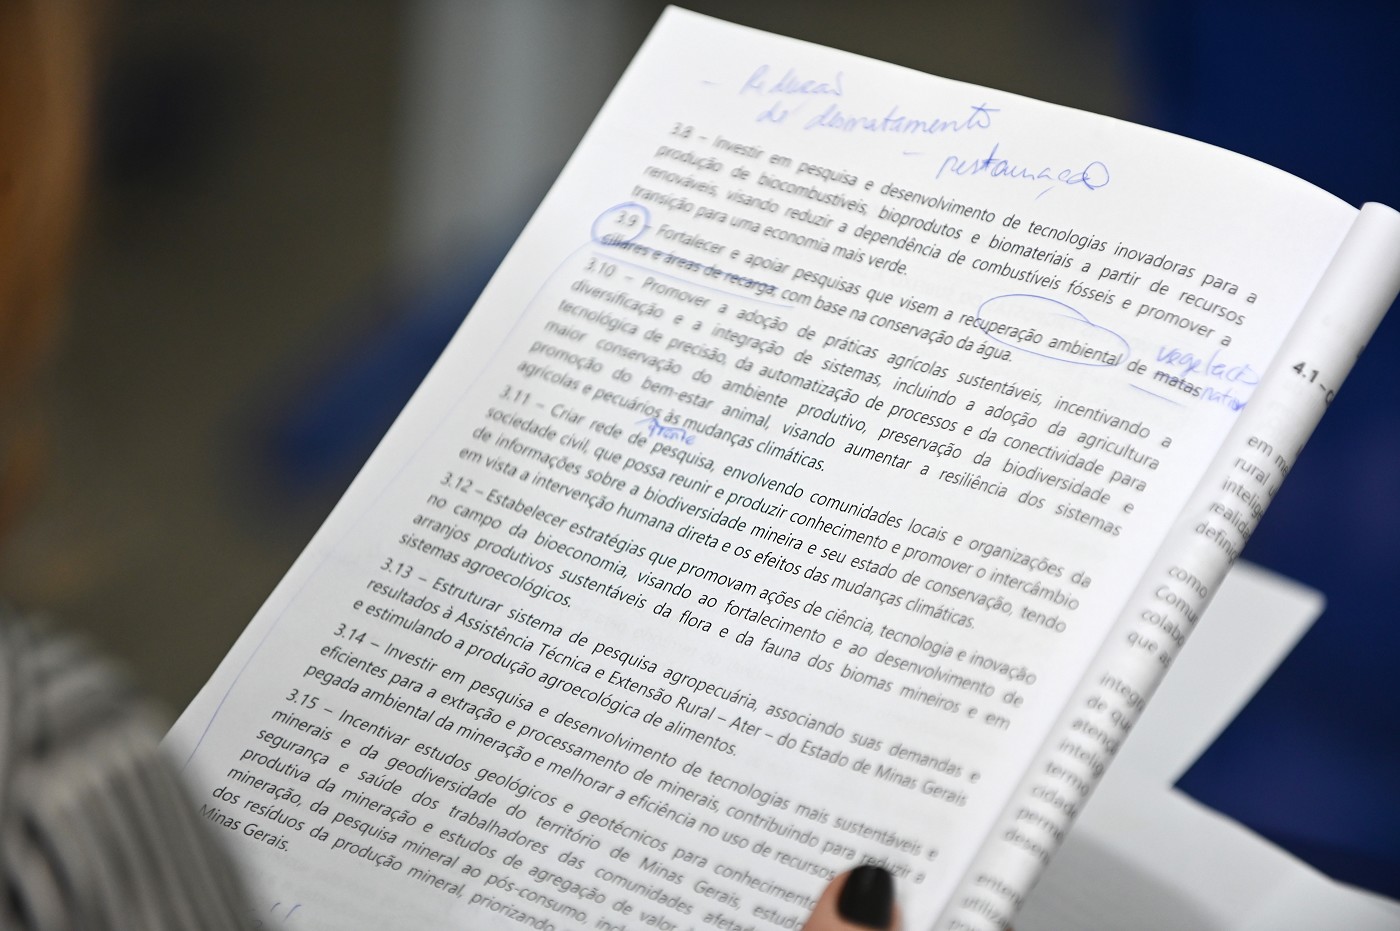 - Redução
de desmatamento
- restauração
3.8 – Investir em pesquisa e desenvolvimento de tecnologias inovadoras para a
produção de biocombustíveis, bioprodutos e biomateriais a partir de recursos
renováveis, visando reduzir a dependência de combustíveis fósseis e promover a
transição para uma economia mais verde.
3.9 – Fortalecer e apoiar pesquisas que visem a recuperação ambiental de matas
vegetação
ciliares e áreas de recarga, com base na conservação da água.
3.10 – Promover a adoção de práticas agrícolas sustentáveis, incentivando a
diversificação e a integração de sistemas, incluindo a adoção da agricultura
tecnológica de precisão, da automatização de processos e da conectividade para
maior conservação do ambiente produtivo, preservação da biodiversidade e
promoção do bem-estar animal, visando aumentar a resiliência dos sistemas
agrícolas e pecuários às mudanças climáticas.
frente
3.11 – Criar rede de pesquisa, envolvendo comunidades locais e organizações da
sociedade civil, que possa reunir e produzir conhecimento e promover o intercâmbio
de informações sobre a biodiversidade mineira e seu estado de conservação, tendo
em vista a intervenção humana direta e os efeitos das mudanças climáticas.
3.12 – Estabelecer estratégias que promovam ações de ciência, tecnologia e inovação
no campo da bioeconomia, visando ao fortalecimento e ao desenvolvimento de
arranjos produtivos sustentáveis da flora e da fauna dos biomas mineiros e em
sistemas agroecológicos.
3.13 – Estruturar sistema de pesquisa agropecuária, associando suas demandas e
resultados à Assistência Técnica e Extensão Rural – Ater – do Estado de Minas Gerais
e estimulando a produção agroecológica de alimentos.
3.14 – Investir em pesquisa e desenvolvimento de tecnologias mais sustentáveis e
eficientes para a extração e processamento de minerais, contribuindo para reduzir a
pegada ambiental da mineração e melhorar a eficiência no uso de recursos
3.15 – Incentivar estudos geológicos e geotécnicos para conhecimento
minerais e da geodiversidade do território de Minas Gerais,
segurança e saúde dos trabalhadores das comunidades
produtiva da mineração e estudos de agregação de valor
mineração, da pesquisa mineral ao pós-consumo,
dos resíduos da produção mineral, priorizando
Minas Gerais.
4.1 –
em
rural
como
que
de que